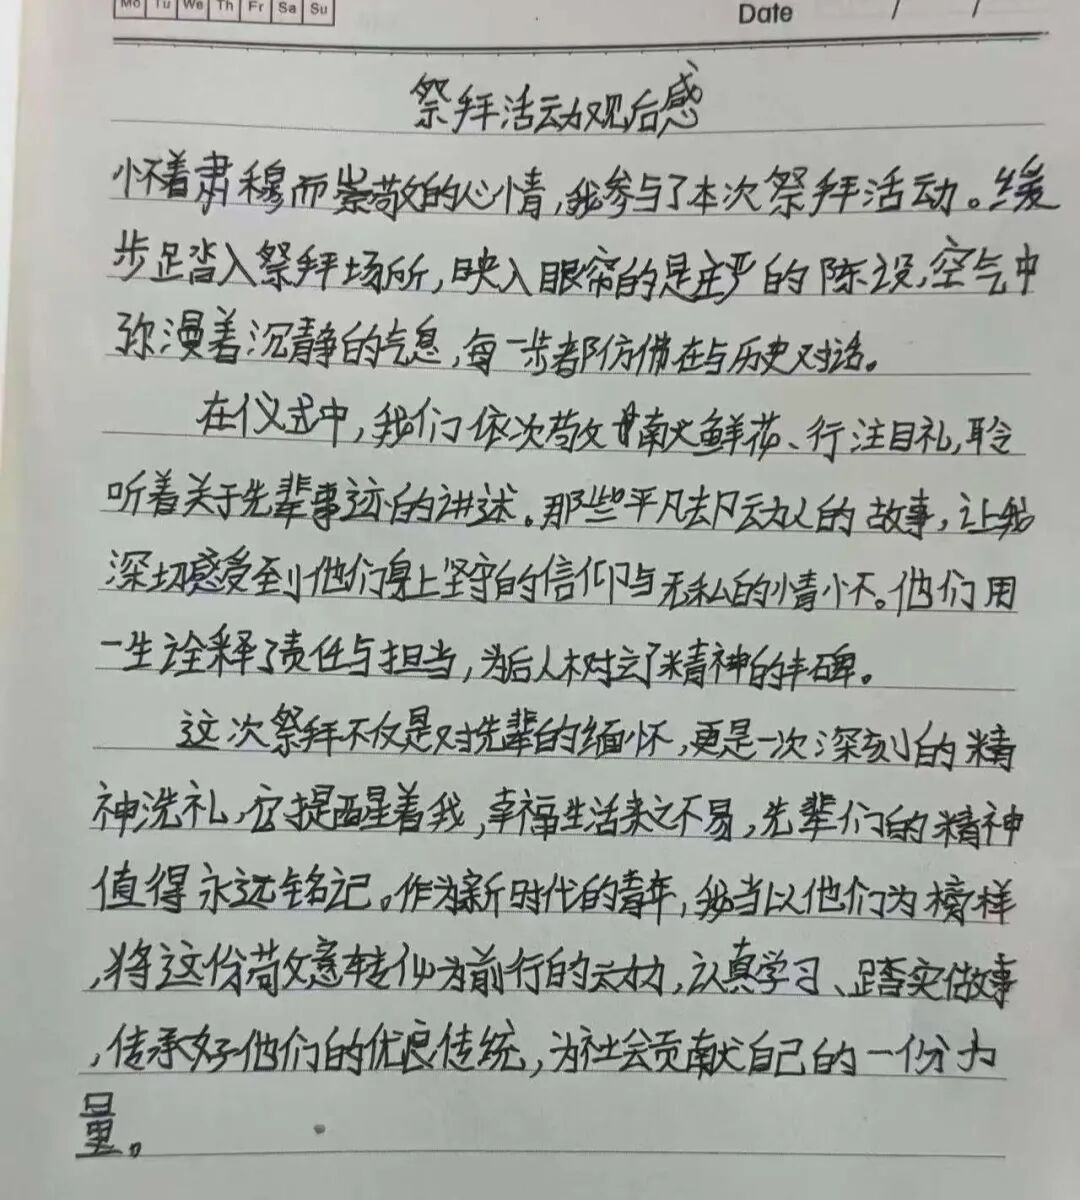 Mo Tu We Th Fr Sa Su
Date / /
祭拜活动观后感
怀着肃穆而崇敬的心情,我参与了本次祭拜活动。缓
步踏入祭拜场所,映入眼帘的是庄严的陈设,空气中
弥漫着沉静的气息,每一步都仿佛在与历史对话。
在仪式中,我们依次敬献鲜花、行注目礼,聆
听着关于先辈事迹的讲述。那些平凡却动人的故事,让我
深切感受到他们身上坚守的信仰与无私的情怀。他们用
一生诠释了责任与担当,为后人树立了精神的丰碑。
这次祭拜不仅是对先辈的缅怀,更是一次深刻的精
神洗礼,它提醒着我,幸福生活来之不易,先辈们的精神
值得永远铭记。作为新时代的青年,我当以他们为榜样
,将这份敬意转化为前行的动力,认真学习、踏实做事
,传承好他们的优良传统,为社会贡献自己的一份力
量。